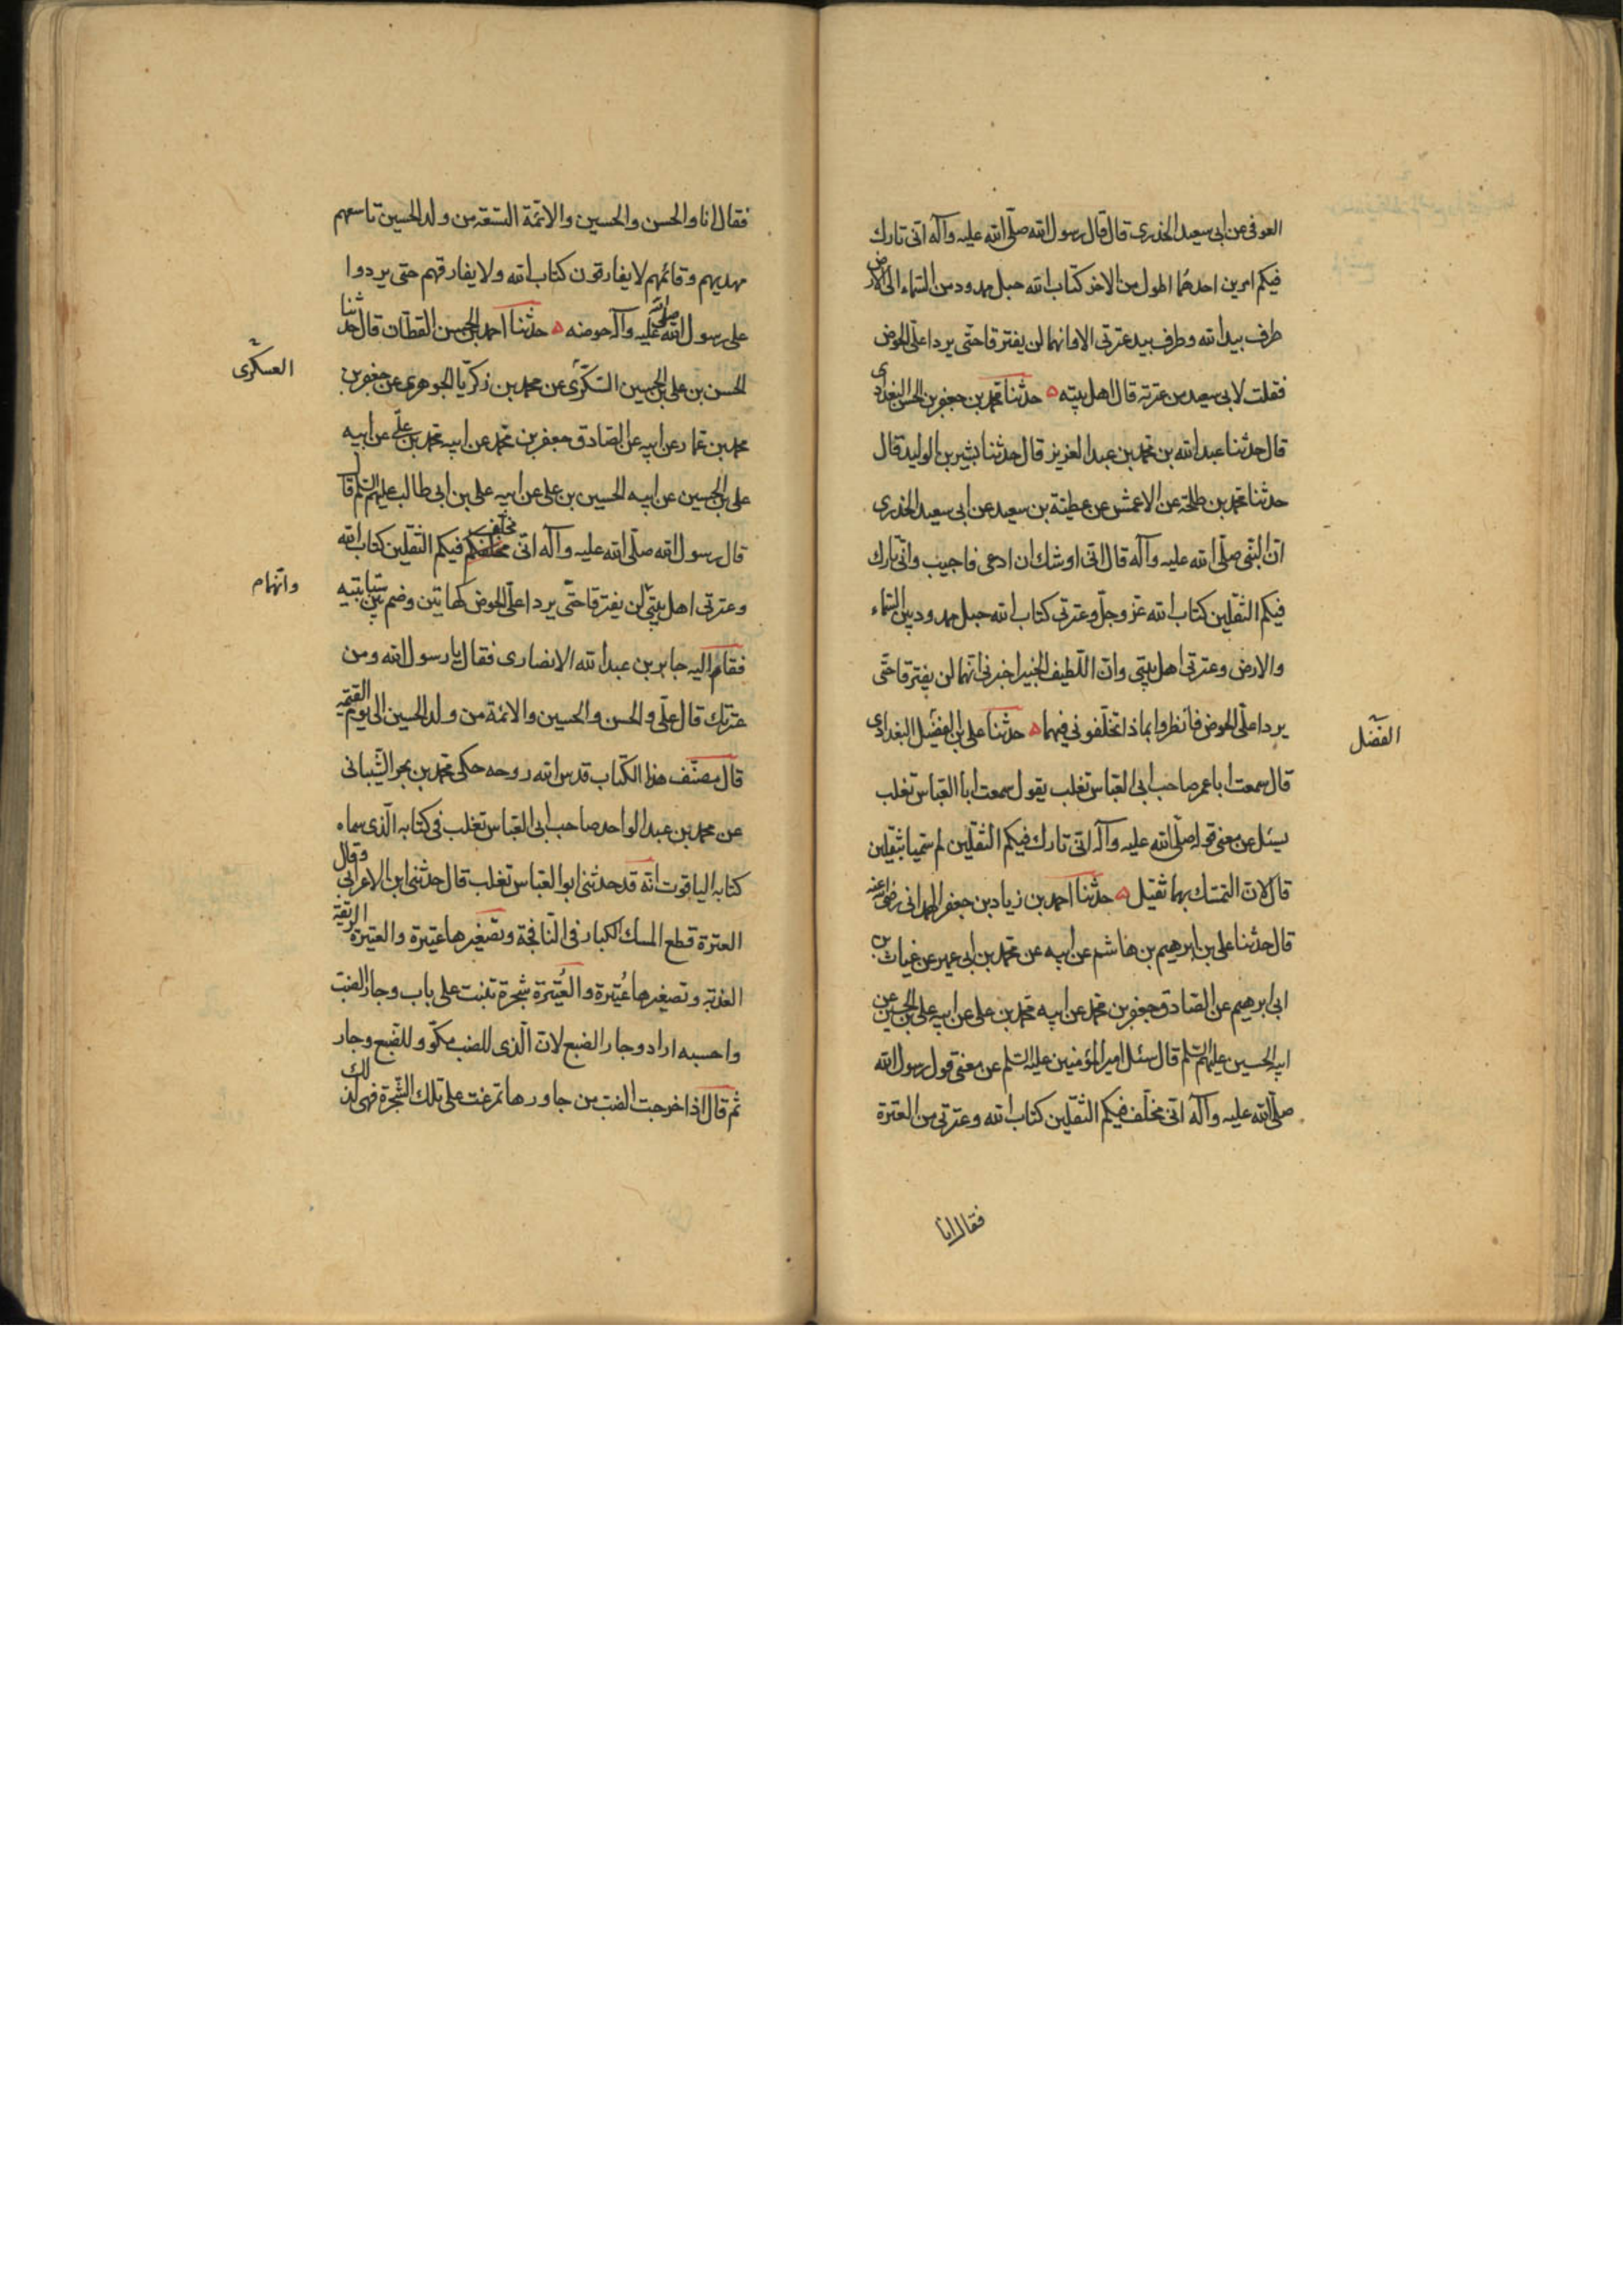 العوفى عن ابى سعيد الخدرى قال قال رسول الله صلّى الله عليه وآله انّى تارك
فيكم امرين احدهما اطول من الاخر كتاب الله حبل ممدود من السّماء الى الارض
طرف بيد الله وطرف بيد عترتى الا وانهما لن يفترقا حتّى يردا علىّ الحوض
فقلت لابى سعيد من عترته قال اهل بيته ۵ حدثنا محمّد بن جعفر بن الحسن البغدادى
قال حدثنا عبد الله بن محمّد بن عبد العزيز قال حدثنا بشير بن الوليد قال
حدثنا محمّد بن طلحة عن الاعمش عن عطيّة بن سعيد عن ابى سعيد الخدرى
انّ النّبى صلّى الله عليه وآله قال انّى اوشك ان ادعى فاجيب وانّى تارك
فيكم الثّقلين كتاب الله عزّ وجلّ وعترتى كتاب الله حبل ممدود بين السّماء
والارض وعترتى اهل بيتى وانّ اللّطيف الخبير اخبرنى انّهما لن يفترقا حتّى
يردا علىّ الحوض فانظروا بماذا تخلّفونى فيهما ۵ حدثنا على بن الفضيل البغدادى
الفضل
قال سمعت ابا عمر صاحب ابى العبّاس تغلب يقول سمعت ابا العبّاس تغلب
يسئل عن معنى قوله صلّى الله عليه وآله انّى تارك فيكم الثّقلين لم سمّيا بثقلين
قال لانّ التمسّك بهما ثقيل ۵ حدّثنا احمد بن زياد بن جعفر الهمدانى رضى الله عنه
قال حدثنا على بن ابرهيم بن هاشم عن ابيه عن محمّد بن ابى عمير عن غياث بن
ابى ابرهيم عن الصّادق جعفر بن محمّد عن ابيه محمّد بن على عن ابيه على بن الحسين عن
ابيه الحسين عليهم السّلم قال سئل امير المؤمنين عليه السّلم عن معنى قول رسول الله
صلّى الله عليه وآله انّى مخلّف فيكم الثّقلين كتاب الله وعترتى من العترة
فقال انا
فقال انا والحسن والحسين والائمّة التسعة من ولد الحسين تاسعهم
مهديهم وقائمهم لا يفارقون كتاب الله ولا يفارقهم حتى يردوا
على رسول الله صلى الله عليه وآله حوضه ۵ حدّثنا احمد بن الحسن القطّان قال حدثنا
الحسن بن على بن الحسين السّكّرى عن محمد بن زكريّا الجوهرى عن جعفر بن
العسكرى
محمد بن عمّار عن ابيه عن الصّادق جعفر بن محمّد عن ابيه محمّد بن علىّ عن ابيه
على بن الحسين عن ابيه الحسين بن على عن ابيه على بن ابى طالب عليهم السّلم قال
قال رسول الله صلّى الله عليه وآله انّى مخلّف فيكم الثّقلين كتاب الله
وعترتى اهل بيتى لن يفترقا حتّى يردا علىّ الحوض كهاتين وضم بين سبّابتيه
وانّهما
فقام اليه جابر بن عبد الله الانصارى فقال يا رسول الله ومن
عترتك قال علّى والحسن والحسين والائمة من ولد الحسين الى يوم القيمة
قال مصنّف هذا الكتاب قدس الله روحه حكى محمّد بن بحر الشّيبانى
عن محمد بن عبد الواحد صاحب ابى العبّاس تغلب فى كتابه الّذى سماه
كتابه الياقوت انّه قد حدثنى ابو العبّاس تغلب قال حدثنى ابن الاعرابى وقال
العترة قطع المسك الكبار فى النّافجة وتصغيرها عتيرة والعتيرة الريقة
العذبة وتصغيرها عُتيرة والعُتيرة شجرة تنبت على باب وجار الضب
واحسبه اراد وجار الضبع لانّ الّذى للضب مكوّ وللضّبع وجار
ثم قال اذا خرجت الضب من جاورها تمرغت على تلك الشّجرة فهى لذلك